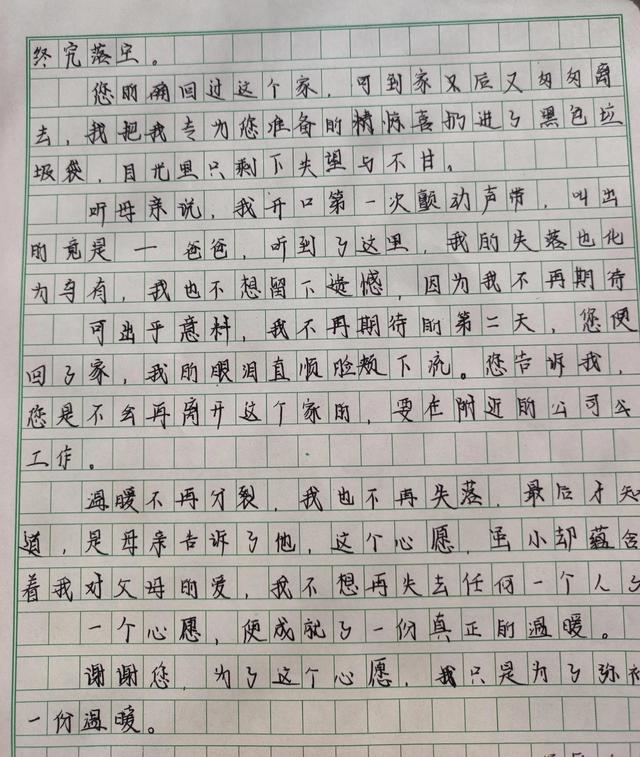 终究落空。
您的确回过这个家，可到家又后又匆匆离
去，我把我专为您准备的精惊喜扔进了黑色垃
圾袋，目光里只剩下失望与不甘。
听母亲说，我开口第一次颤动声带，叫出
的竟是一爸爸，听到了这里，我的失落也化
为乌有，我也不想留下遗憾，因为我不再期待
可出乎意料，我不再期待的第二天，您便
回了家，我的眼泪直顺脸颊下流。您告诉我，
您是不会再离开这个家的，要在附近的公司
工作。
温暖不再分裂，我也不再失落，最后才知
道，是母亲告诉了他，这个心愿，虽小却蕴含
着我对父母的爱，我不想再失去任何一个人了
一个心愿，便成就了一份真正的温暖。
谢谢您，为了这个心愿，我只是为了弥补
一份温暖。